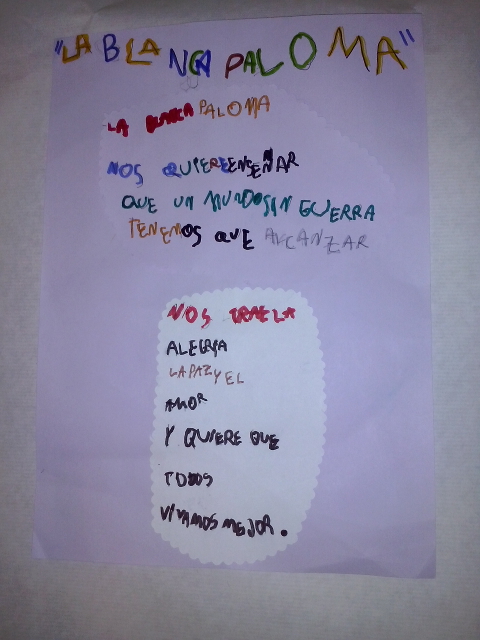 "LA BLANCA PALOMA"
LA BLANCA PALOMA
NOS QUIERE ENSEÑAR
QUE UN MUNDO SIN GUERRA
TENEMOS QUE ALCANZAR
NOS TRAE LA
ALEGRIA
LA PAZ Y EL
AMOR
Y QUIERE QUE
TODOS
VIVAMOS MEJOR.